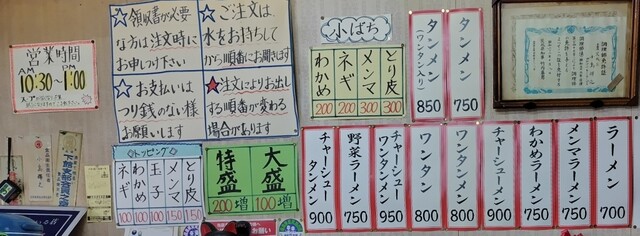 営業時間
AM 10:30~PM 1:00
スープがなくなり次第
☆領収書が必要
な方は注文時に
お申し下さい
☆ご注文は
水をお持ちして
から順番にお聞きます
☆お支払いは
つり銭のない様
お願います
★注文によりお出し
する順番が変わる
場合があります
小ばち
とり皮 300
メンマ 300
ネギ 200
わかめ 200
タンメン 750
タンメン(ワンタン入り) 850
調理師免許証
トッピング
とり皮 150
メンマ 150
玉子 100
わかめ 100
ネギ 100
大盛 100増
特盛 200増
ラーメン 700
メンマラーメン 750
わかめラーメン 750
チャーシューメン 900
ワンタンメン 800
ワンタン 800
チャーシューワンタンメン 950
野菜ラーメン 750
チャーシュータンメン 900